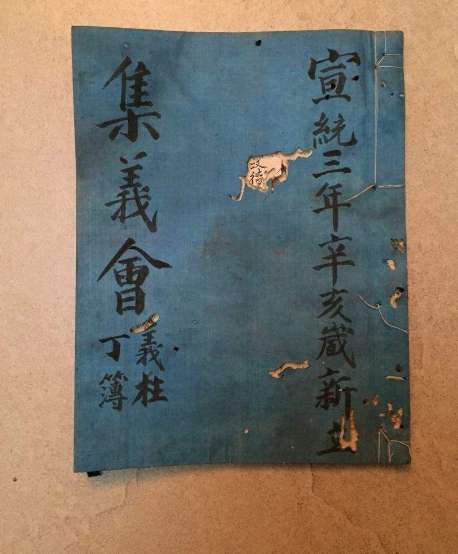 宣統三年辛亥歲新立
集義會
義柱
丁簿